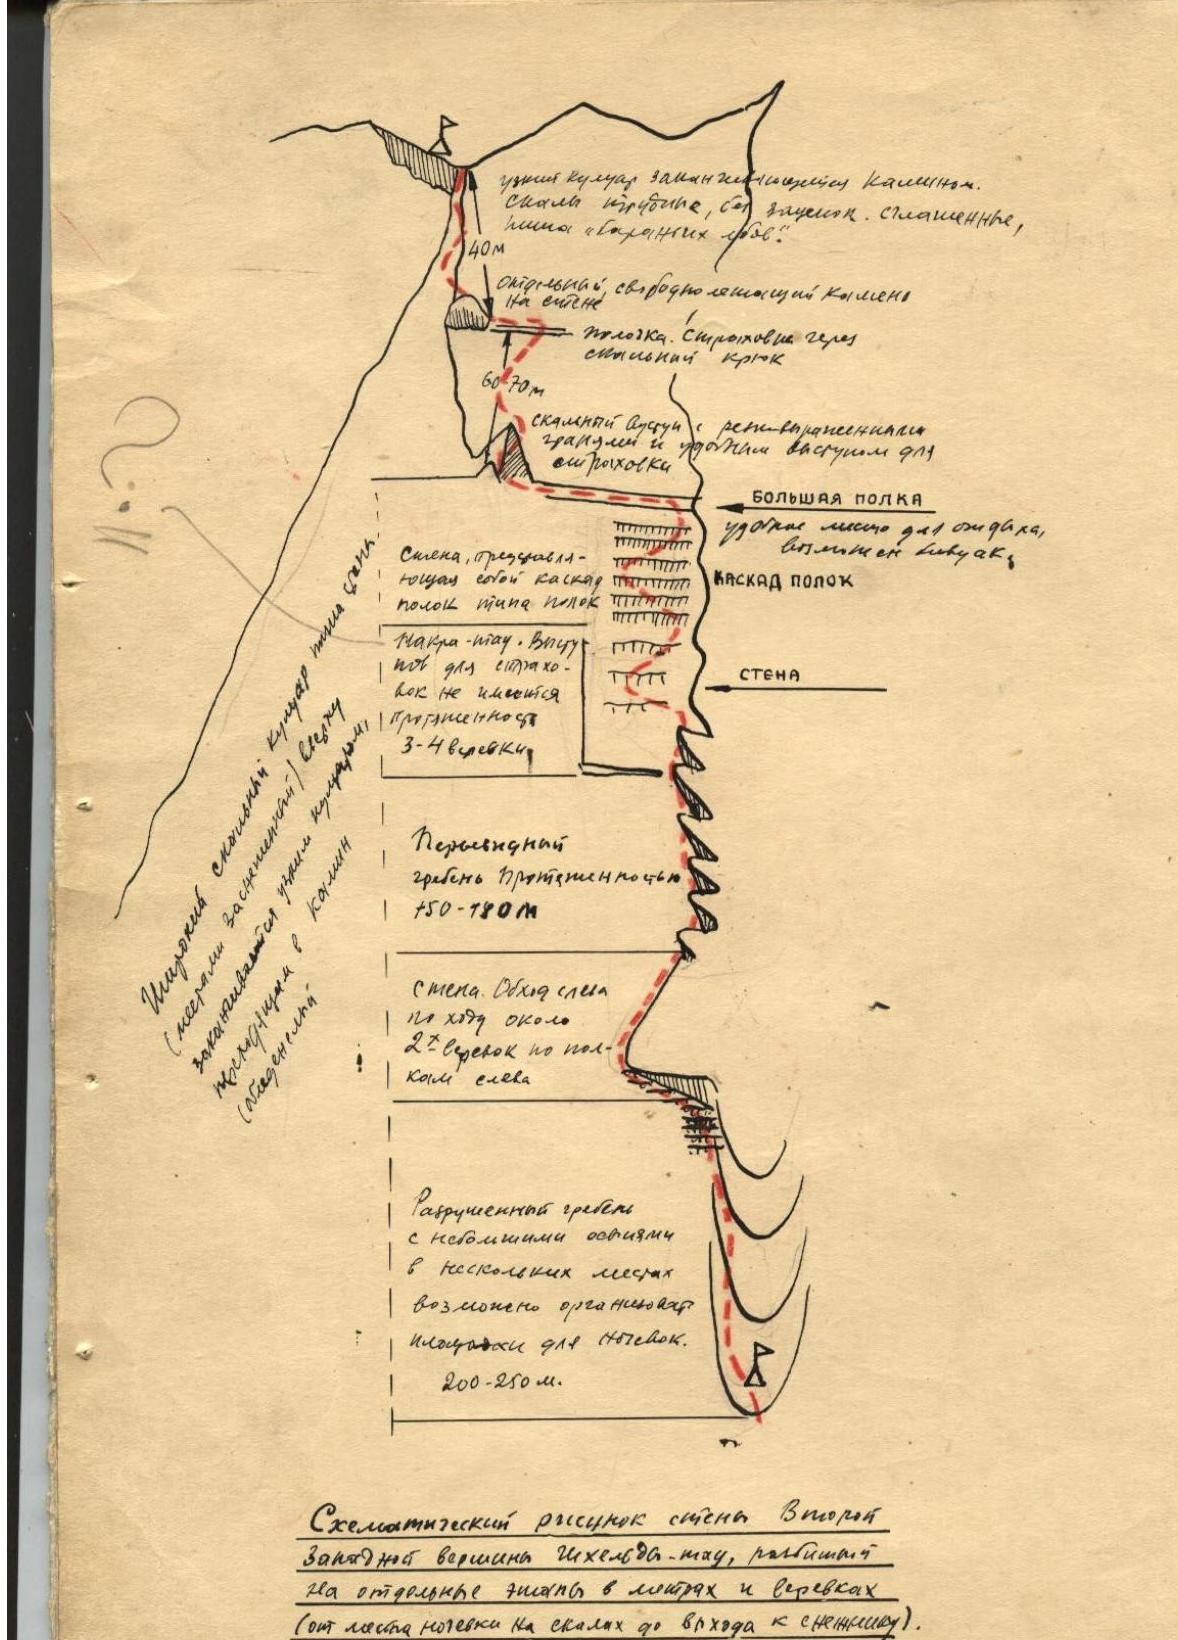 узкий кулуар заканчивающийся камином.
скалы крупные, без зацепок. сглаженные,
типа „бараньих лбов".
40м
отдельный, свободнолежащий камень
на стене
полочка. Страховка через
скальный крюк
60-70м
скальный выступ с резковыраженными
гранями и удобным выступом для
страховки
БОЛЬШАЯ ПОЛКА
удобное место для отдыха,
возможен бивуак.
Стена, представля-
ющая собой каскад
полок типа полок
КАСКАД ПОЛОК
Накра-тау. Высту
пов для страхо-
вок не имеется
протяженность
3-4 веревки
СТЕНА
Широкий скальный кулуар типа
(местами заснеженный) вверху
заканчивается узким кулуаром,
в камин
(обледенелый
Перьевидный
гребень протяженностью
150-180м
Стена. Обход слева
по ходу около
2х веревок по пол-
кам слева
Разрушенный гребень
с небольшими осыпями
в нескольких местах
возможно организоват
площадки для ночевок.
200-250м.
Схематический рисунок стены Второй
Западной вершины Шхельды-тау, разбитый
на отдельные этапы в метрах и веревках
(от места ночевки на скалах до выхода к снежнику).